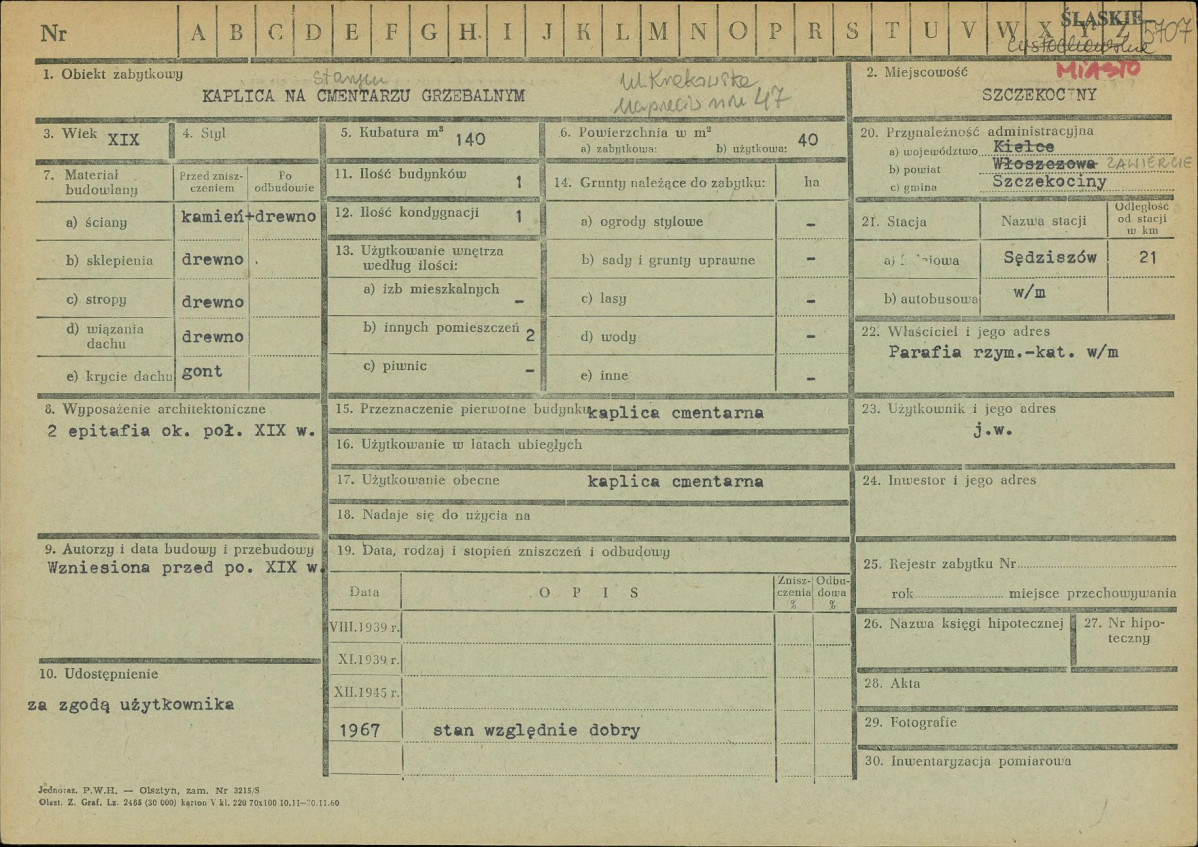 Nr A B C D E F G H I J K L M N O P R S T U V W X Y Z 5707
ŚLĄSKIE
częstochowskie
MIASTO
1. Obiekt zabytkowy
starym
KAPLICA NA CMENTARZU GRZEBALNYM
ul. Krakowska
naprzeciw nru 47
2. Miejscowość
SZCZEKOCINY
3. Wiek XIX
4. Styl
5. Kubatura m³ 140
6. Powierzchnia w m²
a) zabytkowa: b) użytkowa: 40
7. Materiał budowlany
Przed zniszczeniem
Po odbudowie
a) ściany kamień+drewno
b) sklepienia drewno
c) stropy drewno
d) wiązania dachu drewno
e) krycie dachu gont
8. Wyposażenie architektoniczne
2 epitafia ok. poł. XIX w.
9. Autorzy i data budowy i przebudowy
Wzniesiona przed po. XIX w.
10. Udostępnienie
za zgodą użytkownika
11. Ilość budynków 1
12. Ilość kondygnacji 1
13. Użytkowanie wnętrza
według ilości:
a) izb mieszkalnych -
b) innych pomieszczeń 2
c) piwnic -
14. Grunty należące do zabytku: ha
a) ogrody stylowe -
b) sady i grunty uprawne -
c) lasy -
d) wody -
e) inne -
15. Przeznaczenie pierwotne budynku kaplica cmentarna
16. Użytkowanie w latach ubiegłych
17. Użytkowanie obecne kaplica cmentarna
18. Nadaje się do użycia na
19. Data, rodzaj i stopień zniszczeń i odbudowy
Data OPIS Zniszczenia % Odbudowa %
VIII.1939 r.
XI.1939 r.
XII.1945 r.
1967 stan względnie dobry
20. Przynależność administracyjna
a) województwo Kielce
b) powiat Włoszczowa ZAWIERCIE
c) gmina Szczekociny
21. Stacja Nazwa stacji Odległość od stacji w km
a) Sędziszów 21
b) autobusowa w/m
22. Właściciel i jego adres
Parafia rzym.-kat. w/m
23. Użytkownik i jego adres
j.w.
24. Inwestor i jego adres
25. Rejestr zabytku Nr
rok miejsce przechowywania
26. Nazwa księgi hipotecznej
27. Nr hipoteczny
28. Akta
29. Fotografie
30. Inwentaryzacja pomiarowa
Jednoraz. P.W.H. — Olsztyn, zam. Nr 3215/S
Olszt. Z. Graf. Lz. 2465 (30 000) karton V kl. 220 70x100 10.11—30.11.60